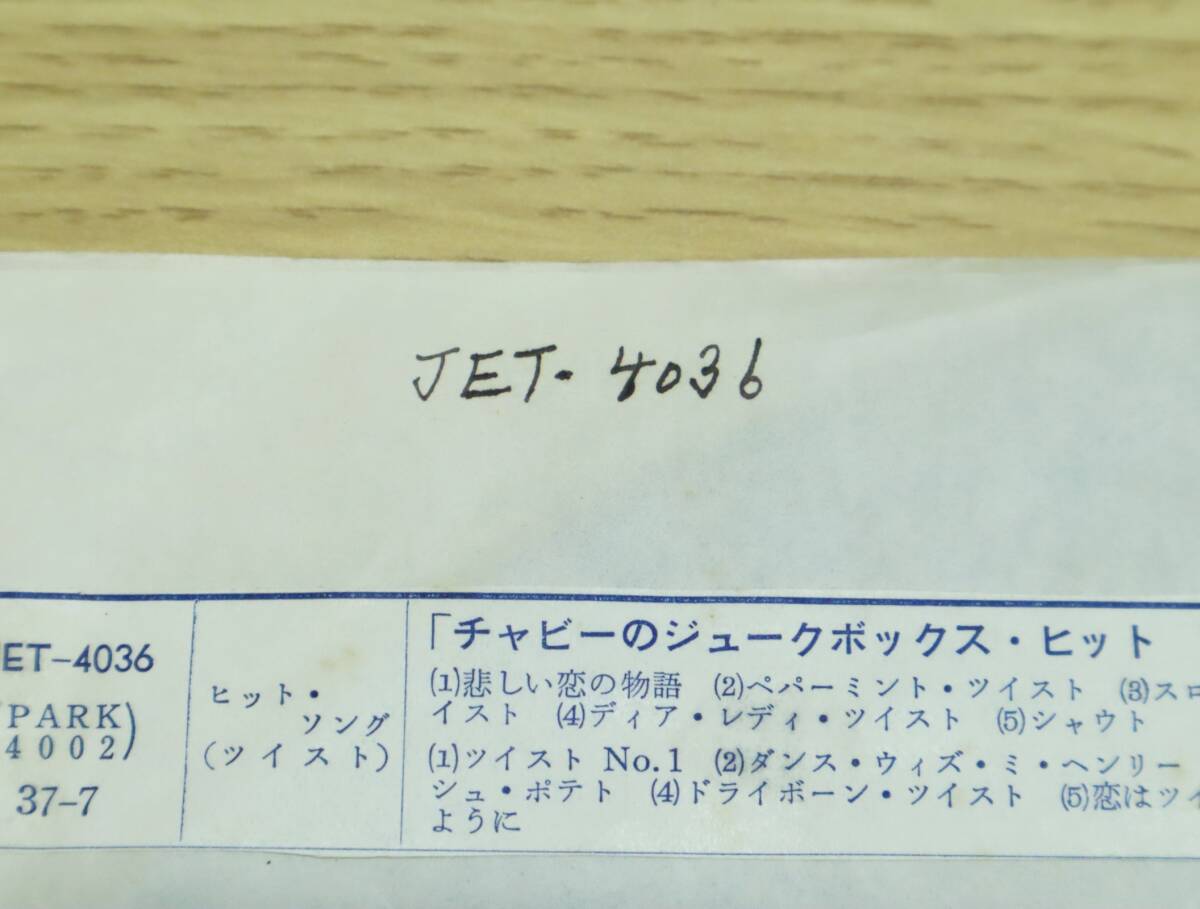 JET-4036
ET-4036
(PARK 4002)
37-7
ヒット・
ソング
(ツイスト)
「チャビーのジュークボックス・ヒット
(1)悲しい恋の物語 (2)ペパーミント・ツイスト (3)スロ
イスト (4)ディア・レディ・ツイスト (5)シャウト
(1)ツイスト No.1 (2)ダンス・ウィズ・ミ・ヘンリー
シュ・ポテト (4)ドライボーン・ツイスト (5)恋はツイ
ように